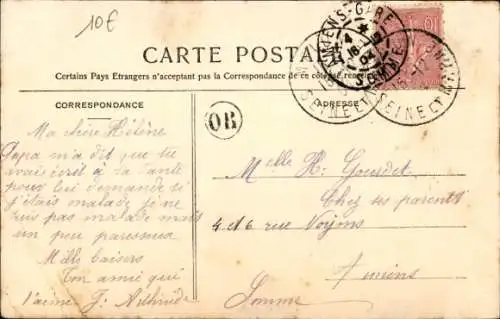 10€
CARTE POSTA
Certains Pays Etrangers n'acceptant pas la Correspondance de ce côté, se renseigner
CORRESPONDANCE
ADRESSE
AMIENS-GARE
SOMME
SEINE
SEINE
10
OR
Ma chère Hélène
Papa m'a dit que tu
avais écrit à la Tante
pour lui demander si
j'étais malade je ne
suis pas malade mais
un peu paresseux
Mille baisers
Ton amie qui
t'aime J.
Melle H. Gourdet
Chez ses parents
4 et 6 rue
Amiens
Somme